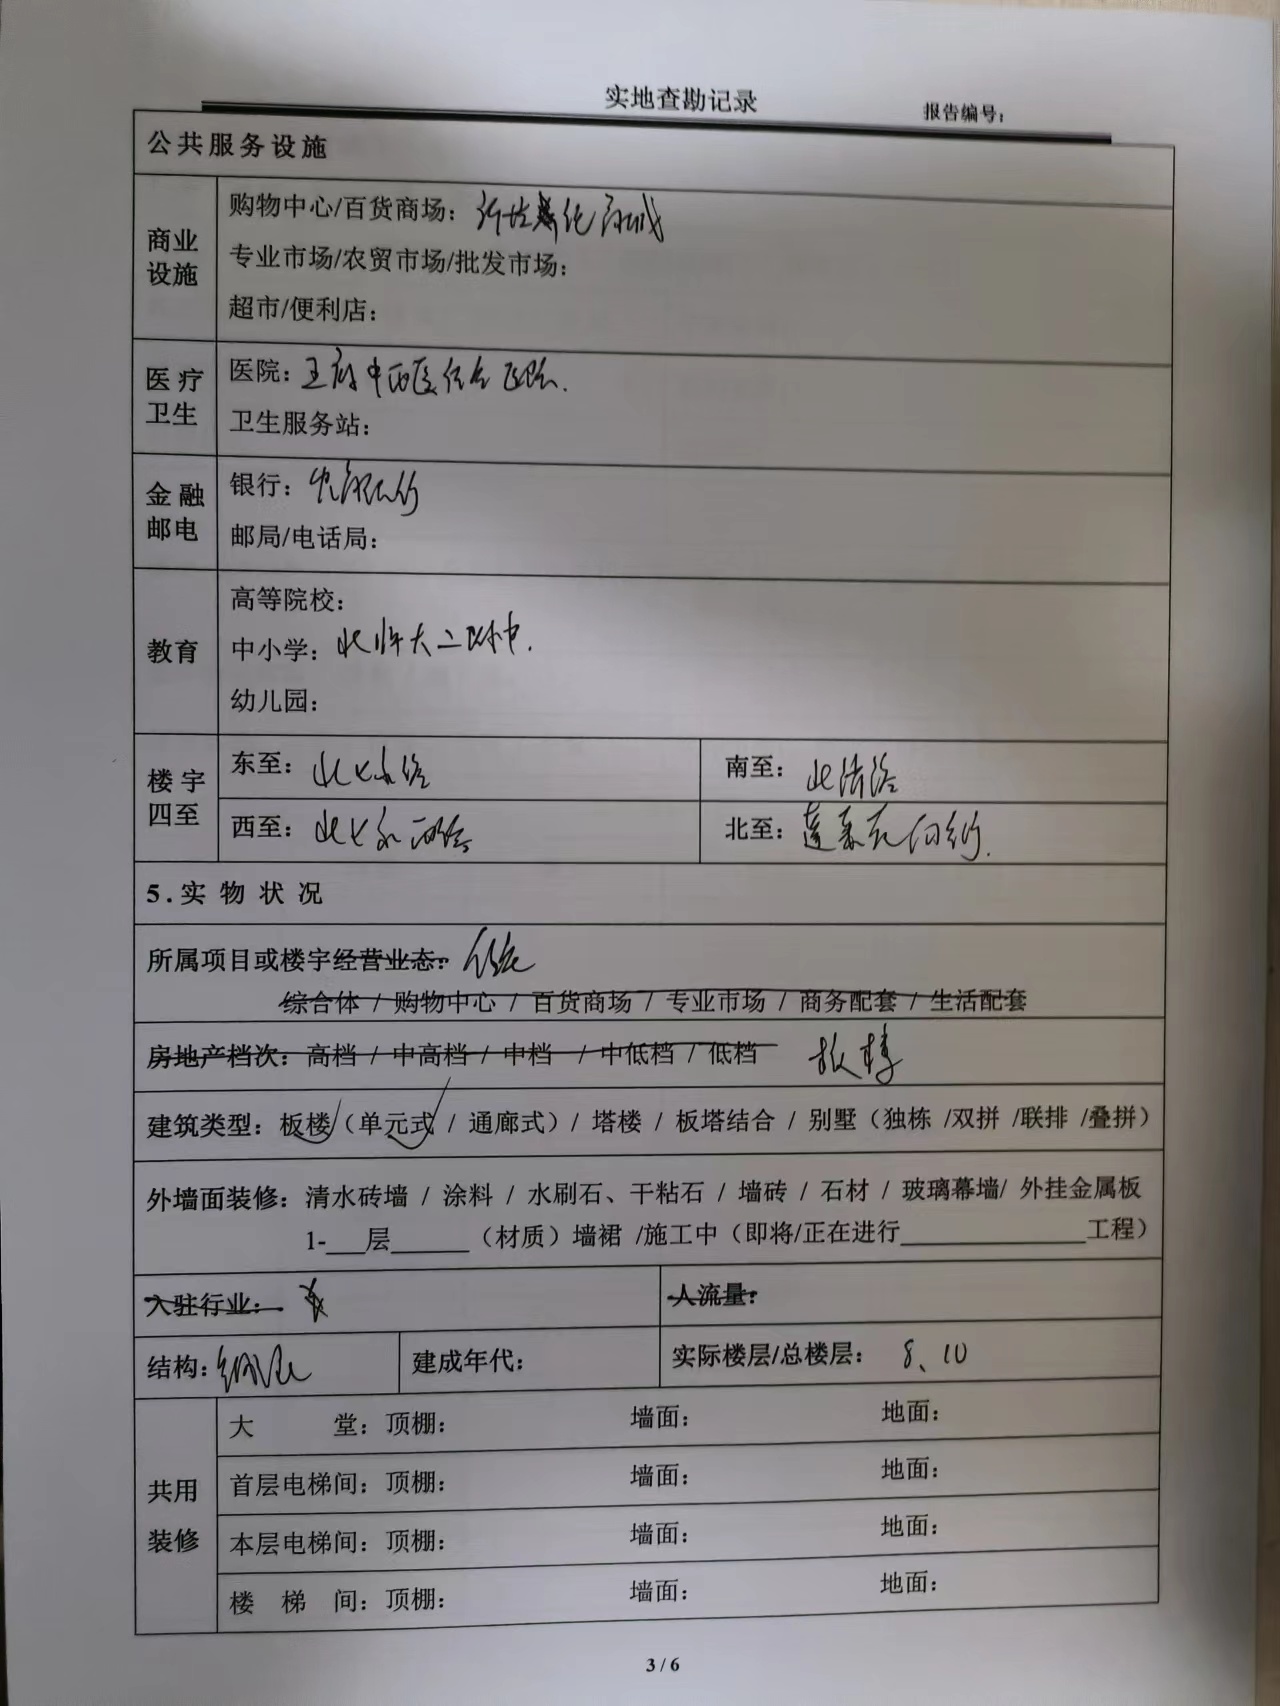 实地查勘记录
报告编号：
公共服务设施
商业设施
购物中心/百货商场：新世纪商城
专业市场/农贸市场/批发市场：
超市/便利店：
医疗卫生
医院：王府中西医结合医院.
卫生服务站：
金融邮电
银行：农商银行
邮局/电话局：
教育
高等院校：
中小学：北师大二附中.
幼儿园：
楼宇四至
东至：北七家
南至：北清路
西至：北七家
北至：蓬莱苑
5.实物状况
所属项目或楼宇经营业态：住宅
综合体 / 购物中心 / 百货商场 / 专业市场 / 商务配套 / 生活配套
房地产档次：高档 / 中高档 / 中档 / 中低档 / 低档 板楼
建筑类型：板楼（单元式 / 通廊式）/ 塔楼 / 板塔结合 / 别墅（独栋 /双拼 /联排 /叠拼）
外墙面装修：清水砖墙 / 涂料 / 水刷石、干粘石 / 墙砖 / 石材 / 玻璃幕墙/ 外挂金属板
1-___层______（材质）墙裙 /施工中（即将/正在进行______________工程）
入驻行业：
人流量：
结构：钢混
建成年代：
实际楼层/总楼层： 8、10
共用装修
大 堂：顶棚： 墙面： 地面：
首层电梯间：顶棚： 墙面： 地面：
本层电梯间：顶棚： 墙面： 地面：
楼 梯 间：顶棚： 墙面： 地面：
3 / 6